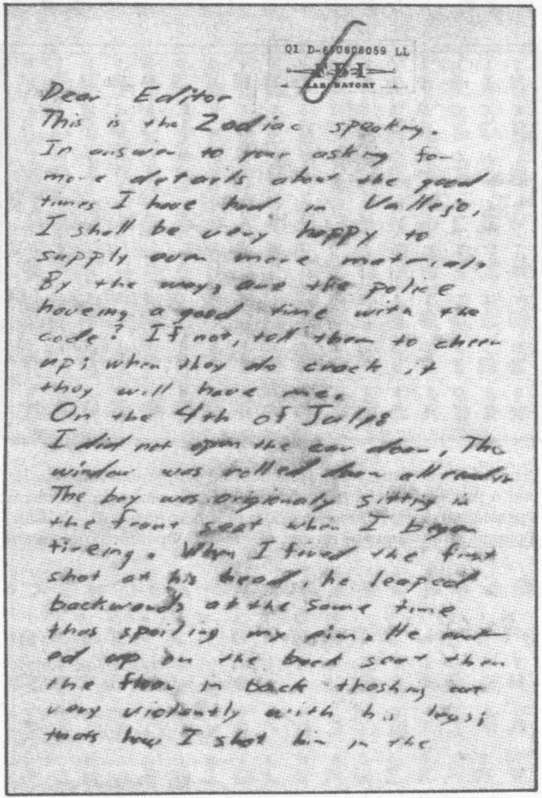 Q1 D-860808059 LL
FBI
LABORATORY
Dear Editor
This is the Zodiac speaking.
In answer to your asking for
more details about the good
times I have had in Vallejo,
I shall be very happy to
supply even more material.
By the way, are the police
haveing a good time with the
code? If not, tell them to cheer
up; when they do crack it
they will have me.
On the 4th of July:
I did not open the car door, The
window was rolled down all ready
The boy was origionaly sitting in
the front seat when I began
fireing. When I fired the first
shot at his head, he leaped
backwards at the same time
thus spoiling my aim. He end-
ed up on the back seat then
the floor in back thashing out
very violently with his legs;
thats how I shot him in the